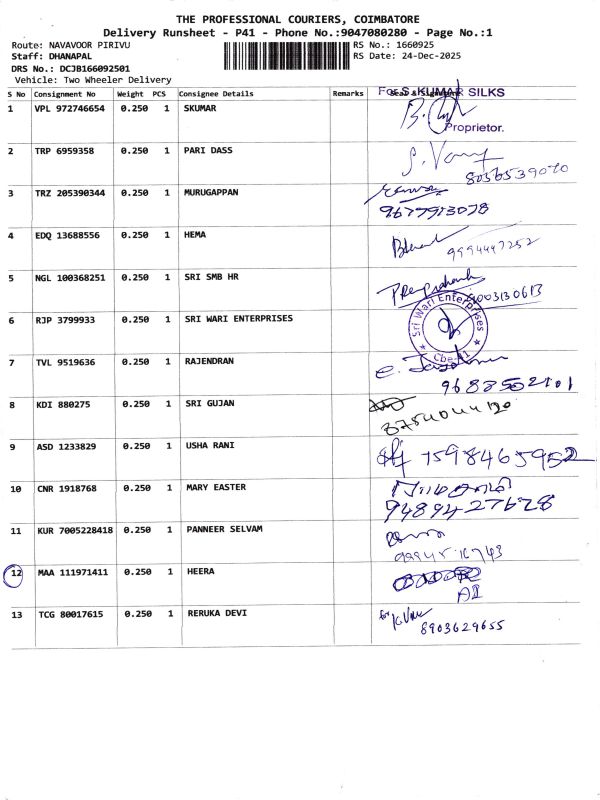 THE PROFESSIONAL COURIERS, COIMBATORE
Delivery Runsheet - P41 - Phone No.:9047080280 - Page No.:1
Route: NAVAVOOR PIRIVU RS No.: 1660925
Staff: DHANAPAL RS Date: 24-Dec-2025
DRS No.: DCJB166092501
Vehicle: Two Wheeler Delivery
S No Consignment No Weight PCS Consignee Details Remarks
For S. KUMAR SILKS
1 VPL 972746654 0.250 1 SKUMAR
Proprietor.
2 TRP 6959358 0.250 1 PARI DASS
8056539070
3 TRZ 205390344 0.250 1 MURUGAPPAN
9677913078
4 EDQ 13688556 0.250 1 HEMA
9994447252
5 NGL 100368251 0.250 1 SRI SMB HR
9003130613
6 RJP 3799933 0.250 1 SRI WARI ENTERPRISES
Sri Wari Enterprises
Cbe-41
7 TVL 9519636 0.250 1 RAJENDRAN
8 KDI 880275 0.250 1 SRI GUJAN
9 ASD 1233829 0.250 1 USHA RANI
7598465952
10 CNR 1918768 0.250 1 MARY EASTER
9489427628
11 KUR 7005228418 0.250 1 PANNEER SELVAM
12 MAA 111971411 0.250 1 HEERA
13 TCG 80017615 0.250 1 RERUKA DEVI
for
8903629655